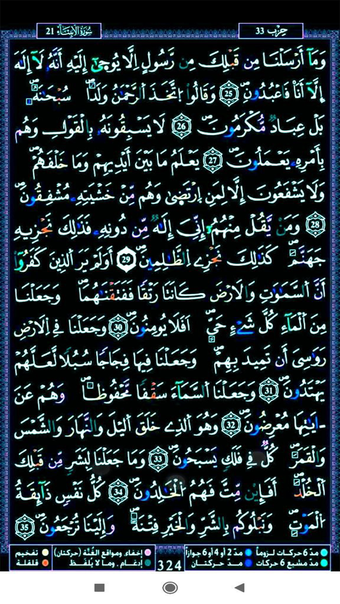 حِزْب ٣٣ سُورَةُ الأَنْبِيَاء ٢١
وَمَا أَرْسَلْنَا مِن قَبْلِكَ مِن رَّسُولٍ إِلَّا نُوحِىٓ إِلَيْهِ أَنَّهُۥ لَآ إِلَٰهَ
إِلَّآ أَنَا۠ فَٱعْبُدُونِ ٢٥ وَقَالُوا۟ ٱتَّخَذَ ٱلرَّحْمَٰنُ وَلَدًا ۗ سُبْحَٰنَهُۥ ۚ
بَلْ عِبَادٌ مُّكْرَمُونَ ٢٦ لَا يَسْبِقُونَهُۥ بِٱلْقَوْلِ وَهُم
بِأَمْرِهِۦ يَعْمَلُونَ ٢٧ يَعْلَمُ مَا بَيْنَ أَيْدِيهِمْ وَمَا خَلْفَهُمْ
وَلَا يَشْفَعُونَ إِلَّا لِمَنِ ٱرْتَضَىٰ وَهُم مِّنْ خَشْيَتِهِۦ مُشْفِقُونَ
٢٨ وَمَن يَقُلْ مِنْهُمْ إِنِّىٓ إِلَٰهٌ مِّن دُونِهِۦ فَذَٰلِكَ نَجْزِيهِ
جَهَنَّمَ ۚ كَذَٰلِكَ نَجْزِى ٱلظَّٰلِمِينَ ٢٩ أَوَلَمْ يَرَ ٱلَّذِينَ كَفَرُوٓا۟
أَنَّ ٱلسَّمَٰوَٰتِ وَٱلْأَرْضَ كَانَتَا رَتْقًا فَفَتَقْنَٰهُمَا ۖ وَجَعَلْنَا
مِنَ ٱلْمَآءِ كُلَّ شَىْءٍ حَىٍّ ۖ أَفَلَا يُؤْمِنُونَ ٣٠ وَجَعَلْنَا فِى ٱلْأَرْضِ
رَوَٰسِىَ أَن تَمِيدَ بِهِمْ وَجَعَلْنَا فِيهَا فِجَاجًا سُبُلًا لَّعَلَّهُمْ
يَهْتَدُونَ ٣١ وَجَعَلْنَا ٱلسَّمَآءَ سَقْفًا مَّحْفُوظًا ۖ وَهُمْ عَنْ
ءَايَٰتِهَا مُعْرِضُونَ ٣٢ وَهُوَ ٱلَّذِى خَلَقَ ٱلَّيْلَ وَٱلنَّهَارَ وَٱلشَّمْسَ
وَٱلْقَمَرَ ۖ كُلٌّ فِى فَلَكٍ يَسْبَحُونَ ٣٣ وَمَا جَعَلْنَا لِبَشَرٍ مِّن قَبْلِكَ
ٱلْخُلْدَ ۖ أَفَإِي۟ن مِّتَّ فَهُمُ ٱلْخَٰلِدُونَ ٣٤ كُلُّ نَفْسٍ ذَآئِقَةُ
ٱلْمَوْتِ ۗ وَنَبْلُوكُم بِٱلشَّرِّ وَٱلْخَيْرِ فِتْنَةً ۖ وَإِلَيْنَا تُرْجَعُونَ ٣٥
مدّ ٦ حركات لزوماً مدّ ٢ أو ٤ أو ٦ جوازاً إخفاء، ومواقع الغُنَّة (حركتان) تفخيم
مدّ مشبع ٦ حركات مدّ حركتان 324 إدغام، وما لا يُلفَظ قلقلة